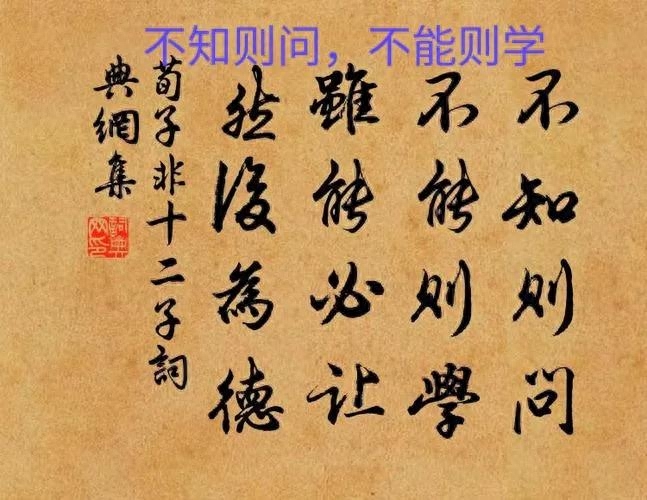 不知则问，不能则学
不知则问
不能则學
雖能必让
然後為德
荀子非十二子詞
典網集